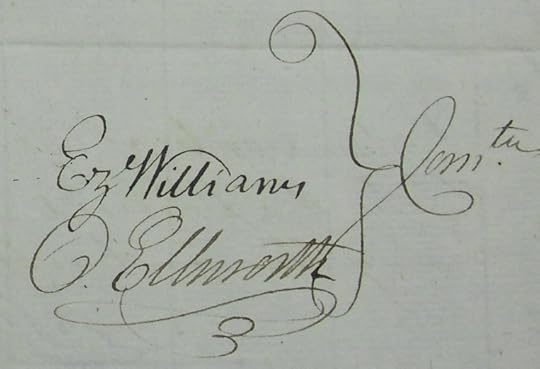 Ez Williams
O. Ellsworth
Comtee